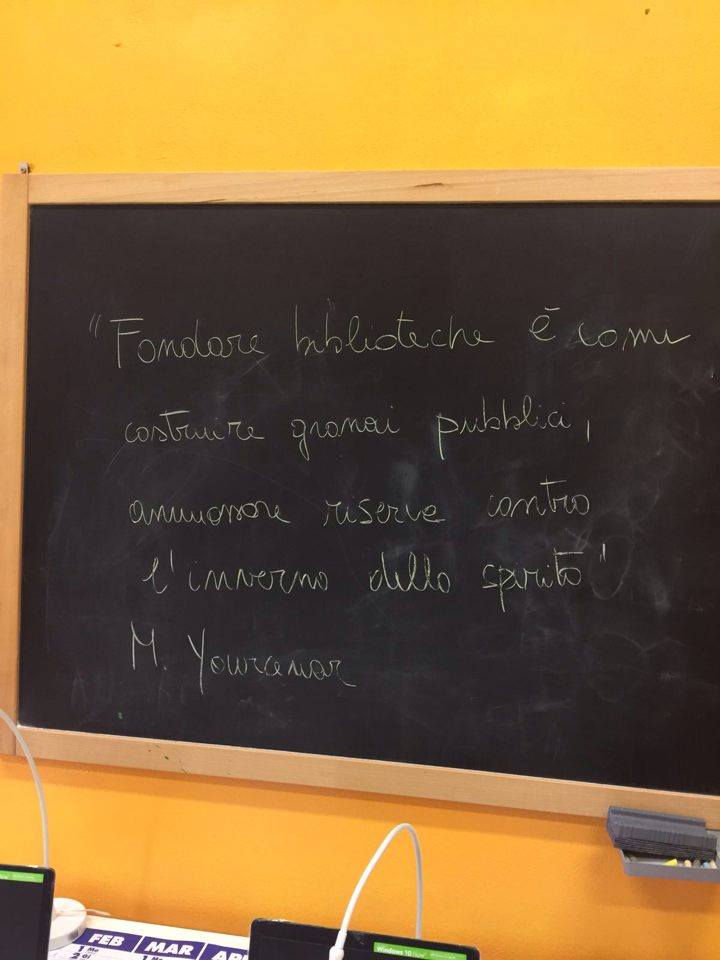 "Fondare biblioteche è come
costruire granai pubblici,
ammassare riserve contro
l'inverno dello spirito"
M. Yourcenar
FEB MAR
1 Me
2 Gi
Windows 10